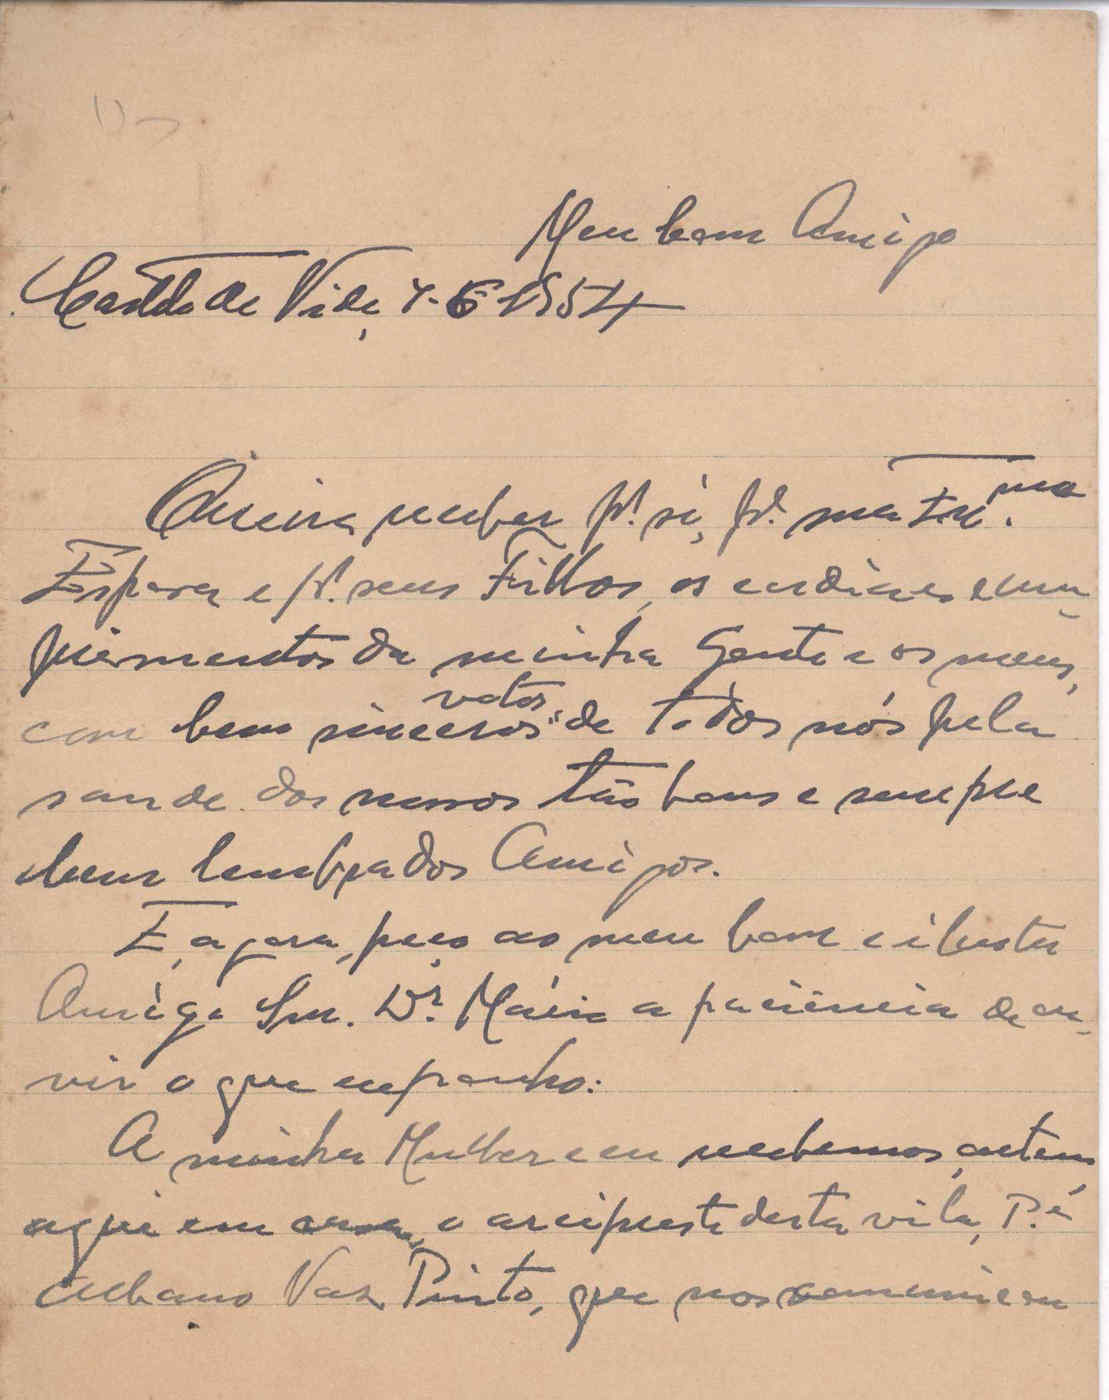 Meu bom Amigo
Castelo de Vide, 7-6-1954
Queira receber p.ª si, p.ª sua Ex.ma
Esposa e p.ª seus Filhos, os cordiaes cum-
primentos da minha Gente e os meus,
com bem sinceros votos, de todos nós pela
saude dos nossos tão bons e sempre
bem lembrados Amigos.
E, agora, peço ao meu bom e ilustre
Amigo Snr. Dr. Mário a paciência de ou-
vir o que exponho:
A minha Mulher e eu recebemos, ontem,
aqui em casa, o arcipreste desta vila, P.e
Albano Vaz Pinto, que nos comunicou